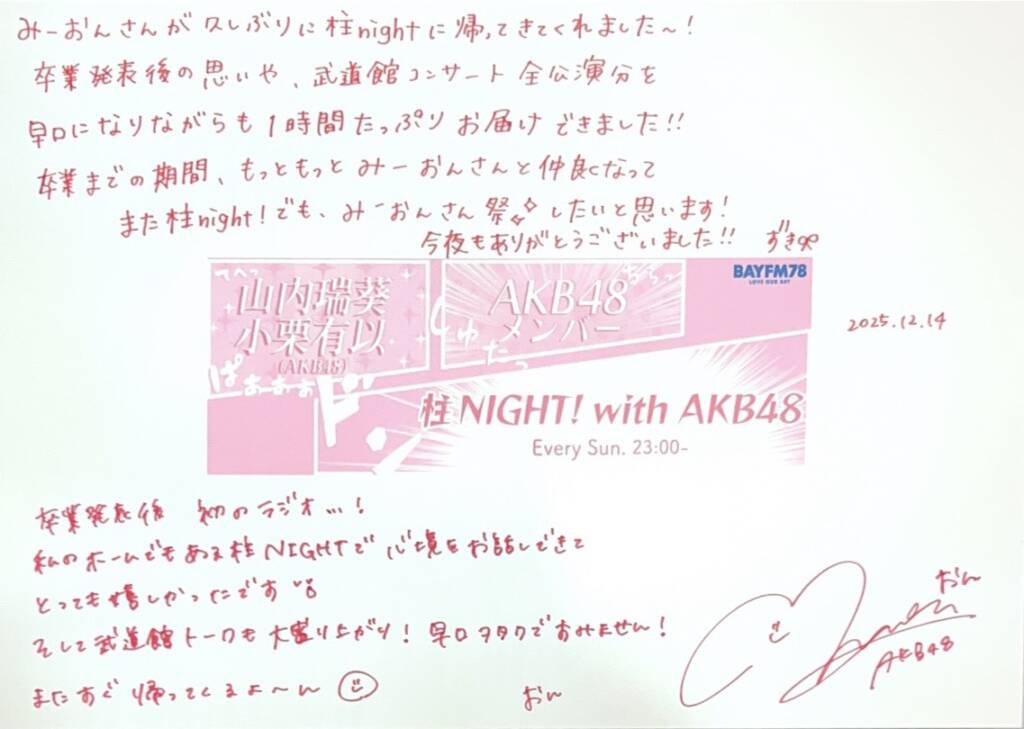 みーおんさんが久しぶりに柱nightに帰ってきてくれました〜!
卒業発表後の思いや、武道館コンサート全公演分を
早口になりながらも1時間たっぷりお届けできました!!
卒業までの期間、もっともっとみーおんさんと仲良くなって
また柱night!でも、みーおんさん祭したいと思います!
今夜もありがとうございました!! ずき
てへっ
山内瑞葵
小栗有以
(AKB48)
ぱぁぁぁぁ
AKB48
メンバー
ちらっ
しゅたっ
BAYFM78
LOVE OUR BAY
柱NIGHT! with AKB48
Every Sun. 23:00-
2025.12.14
卒業発表後 初のラジオ…!
私のホームでもある柱NIGHTで心境をお話しできて
とっても嬉しかったです
そして武道館トークも大盛り上がり!早口ヲタクですみません!
またすぐ帰ってくるよ〜ん
おん
おん
AKB48